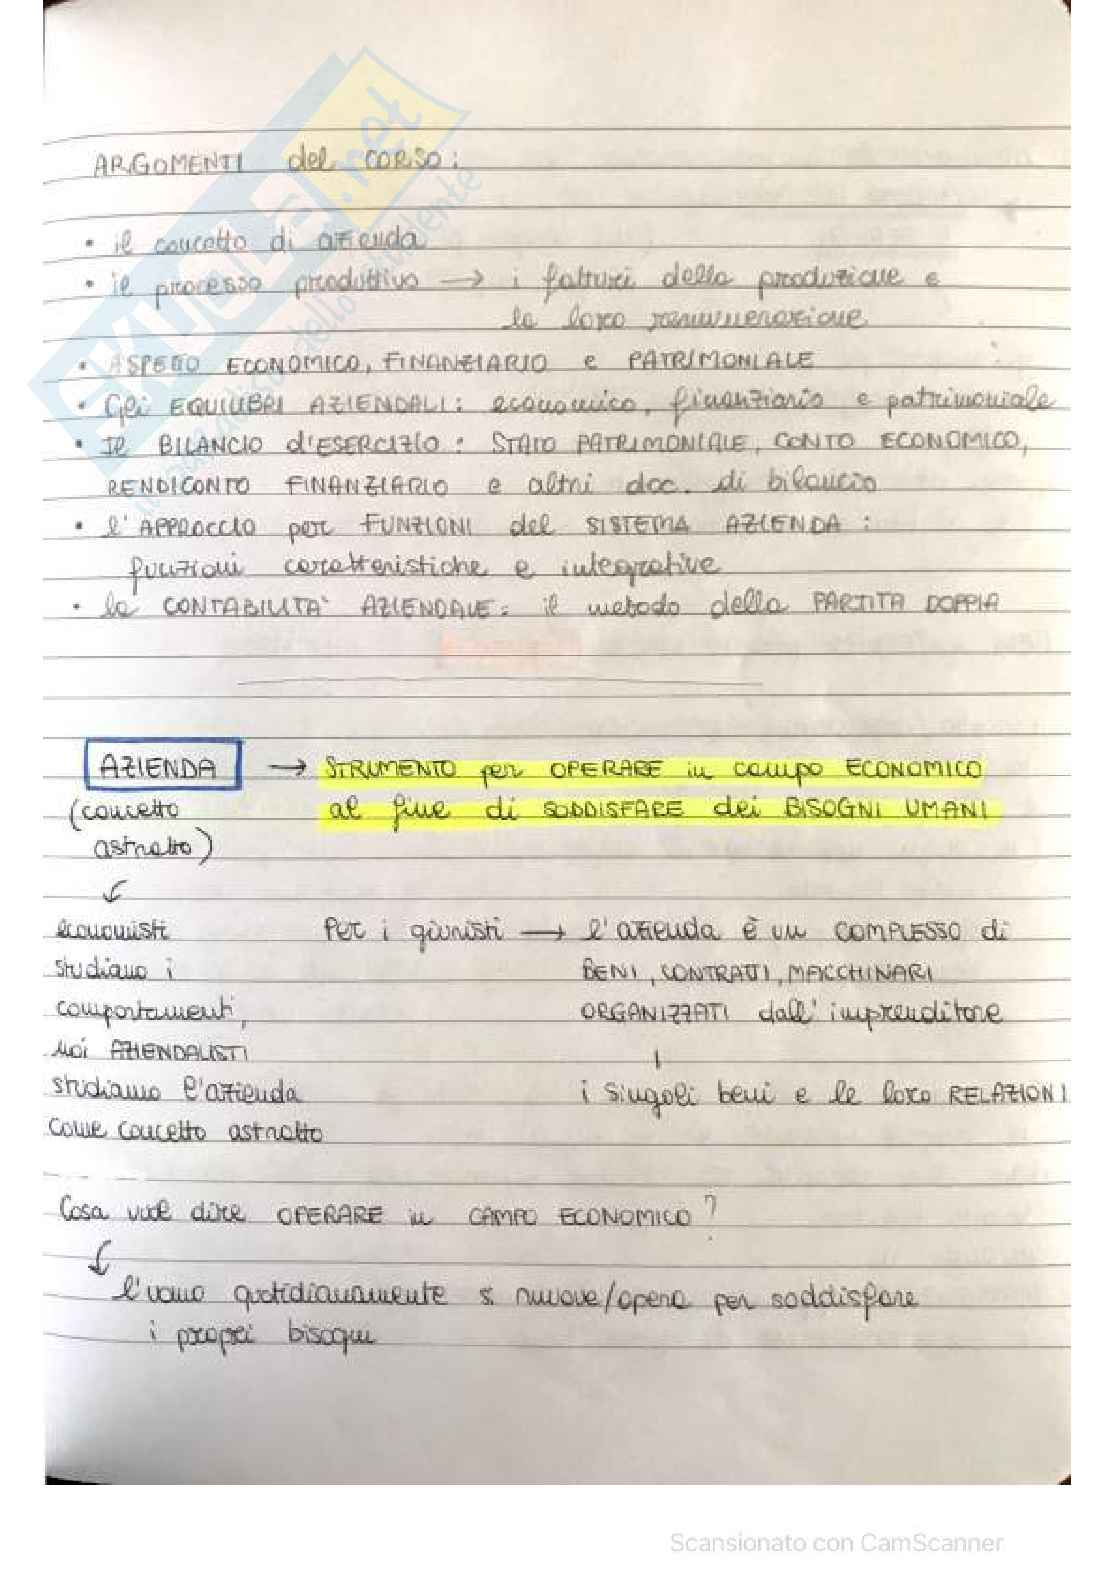 ARGOMENTI del CORSO:
• il concetto di azienda
• il processo produttivo → i fattori della produzione e
la loro remunerazione
• ASPETTO ECONOMICO, FINANZIARIO e PATRIMONIALE
• Gli EQUILIBRI AZIENDALI: economico, finanziario e patrimoniale
• Il BILANCIO d'ESERCIZIO: STATO PATRIMONIALE, CONTO ECONOMICO,
RENDICONTO FINANZIARIO e altri doc. di bilancio
• l'APPROCCIO per FUNZIONI del SISTEMA AZIENDA:
funzioni caratteristiche e integrative
• la CONTABILITA' AZIENDALE: il metodo della PARTITA DOPPIA
AZIENDA → STRUMENTO per OPERARE in campo ECONOMICO
al fine di SODDISFARE dei BISOGNI UMANI
(concetto
astratto)
economisti
studiano i
comportamenti,
noi AZIENDALISTI
studiamo l'azienda
come concetto astratto
Per i giuristi → l'azienda è un COMPLESSO di
BENI, CONTRATTI, MACCHINARI
ORGANIZZATI dall'imprenditore
i singoli beni e le loro RELAZIONI
Cosa vuol dire OPERARE in CAMPO ECONOMICO?
l'uomo quotidianamente si muove/opera per soddisfare
i propri bisogni
SKUOLA.net
Scansionato con CamScanner